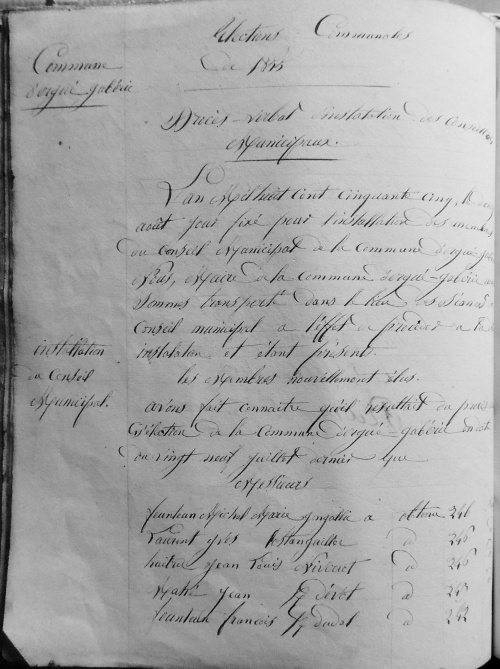 Elections Communales
de 1855
Commune
d'ergué gabéric
Procès-verbal d'instalation des Conseillers
Municipaux.
L'an Mil huit cent cinquante cinq, le
août jour fixé pour l'installation des membres
du Conseil Municipal de la Commune d'ergué-gabéric
Nous, Maire de la Commune d'ergué-gabéric
Sommes transporté dans le lieu des Séances du
Conseil municipal a l'effet de procéder a la
instalation et étant présent.
installation
du Conseil
Municipal.
les Membres nouvellement élus.
avons fait connaitre qu'il résultait du procès
d'élection de la Commune d'ergué-gabéric en date
du vingt neuf juillet dernier que
Messieurs
Jean Michel Marie a obtenu 246
Laurent yves d 246
Jean Louis d 246
Mahé Jean d 243
françois d 242